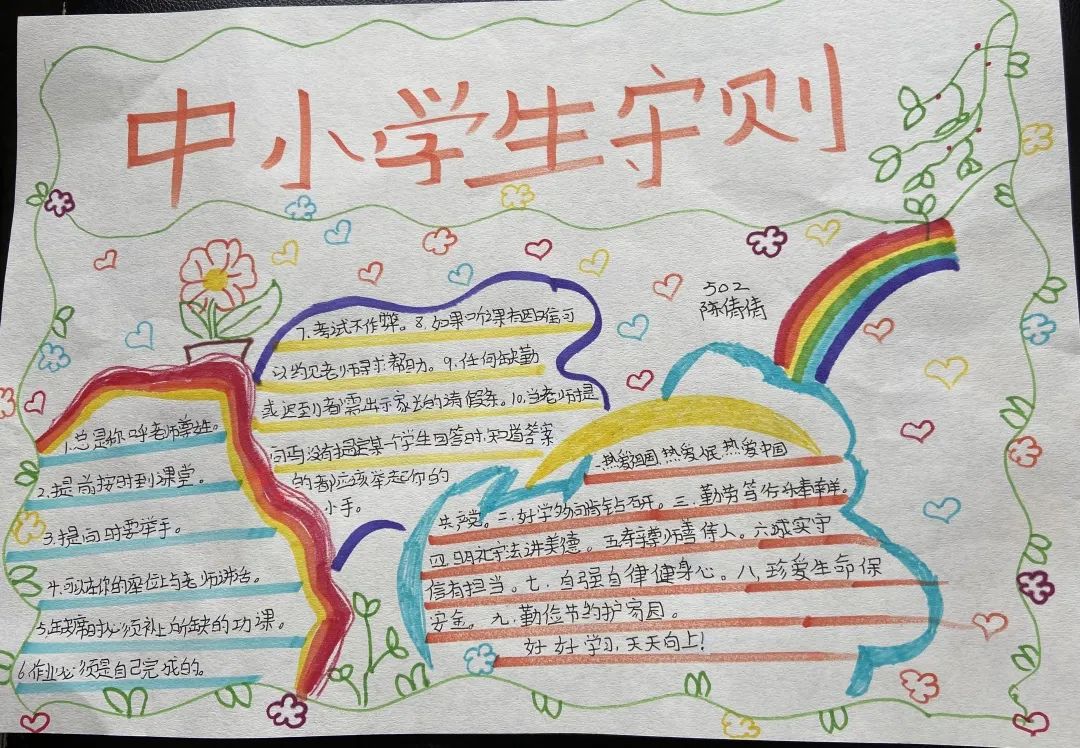 中小学生守则
502
陈倩倩
1.总是称呼老师尊姓。
2.提前按时到课堂。
3.提问时要举手。
4.可以在你的座位上与老师讲话。
5.缺席时必须补上所缺的功课。
6.作业必须是自己完成的。
7.考试不作弊。8.如果听课有困难可
以约见老师寻求帮助。9.任何缺勤
或迟到都需出示家长的请假条。10.当老师提
问而没有指定某一个学生回答时,知道答案
的都应该举起你的
小手。
一.热爱祖国热爱人民热爱中国
共产党。二.好学多问肯钻研。三.勤劳笃行乐奉献。
四.明礼守法讲美德。五.孝亲尊师善待人。六.诚实守
信有担当。七.自强自律健身心。八.珍爱生命保
安全。九.勤俭节约护家园。
好好学习,天天向上!